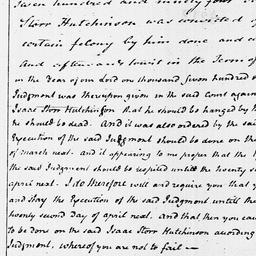 seven hundred and ninety four
Storr Hutchinson was convicted of
certain felony by him done and
And afterwards towit in the Term of
in the Year of our Lord on thousand, seven hundred
Judgment was thereupon given in the said Court against
Isaac Storr Hutchinson that he should be hanged by
he should be dead. And it was also ordered by the said
Execution of the said Judgment should be done on the
of march next. and it appearing to me proper that the
the said Judgment should be respited untill the twenty
april next. I do therefore will and require you that
and stay the Execution of the said Judgment, untill the
twenty second day of april next. and that then you cause
to be done on the said Isaac Storr Hutchinson according
Judgment, whereof you are not to fail —